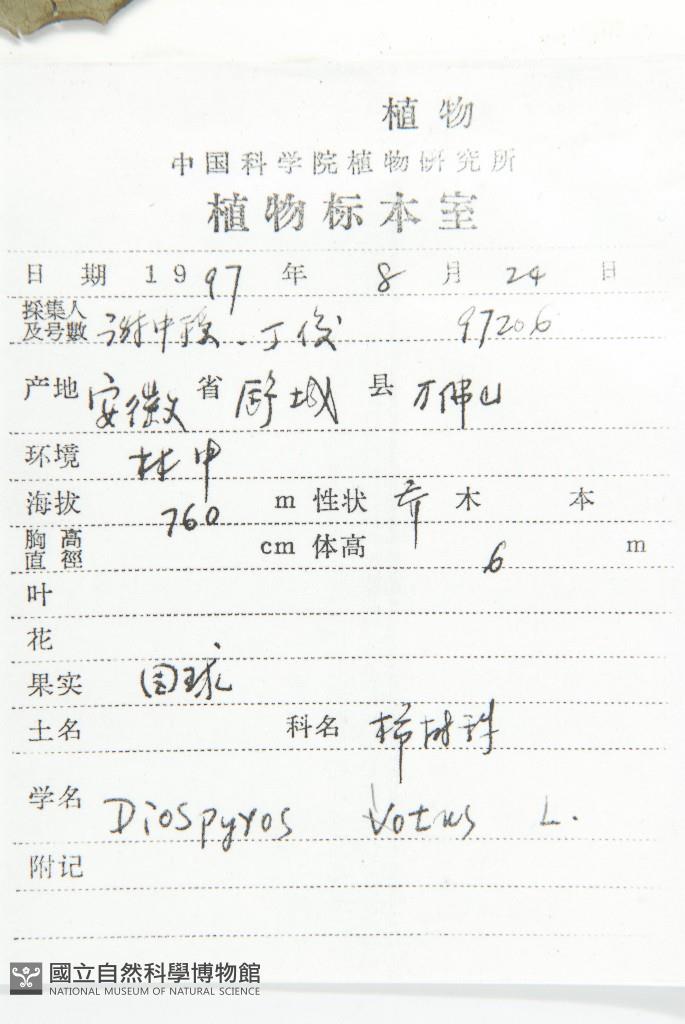 植物
中国科学院植物研究所
植物标本室
日 期 1997 年 8 月 24 日
採集人及号數 谢中稳、丁俊 97206
产地 安徽 省 舒城 县 万佛山
环境 林中
海拔 760 m 性状 乔 木 本
胸高直徑 cm 体高 6 m
叶
花
果实 园球
土名 科名 柿树科
学名 Diospyros lotus L.
附记
國立自然科學博物館
NATIONAL MUSEUM OF NATURAL SCIENCE